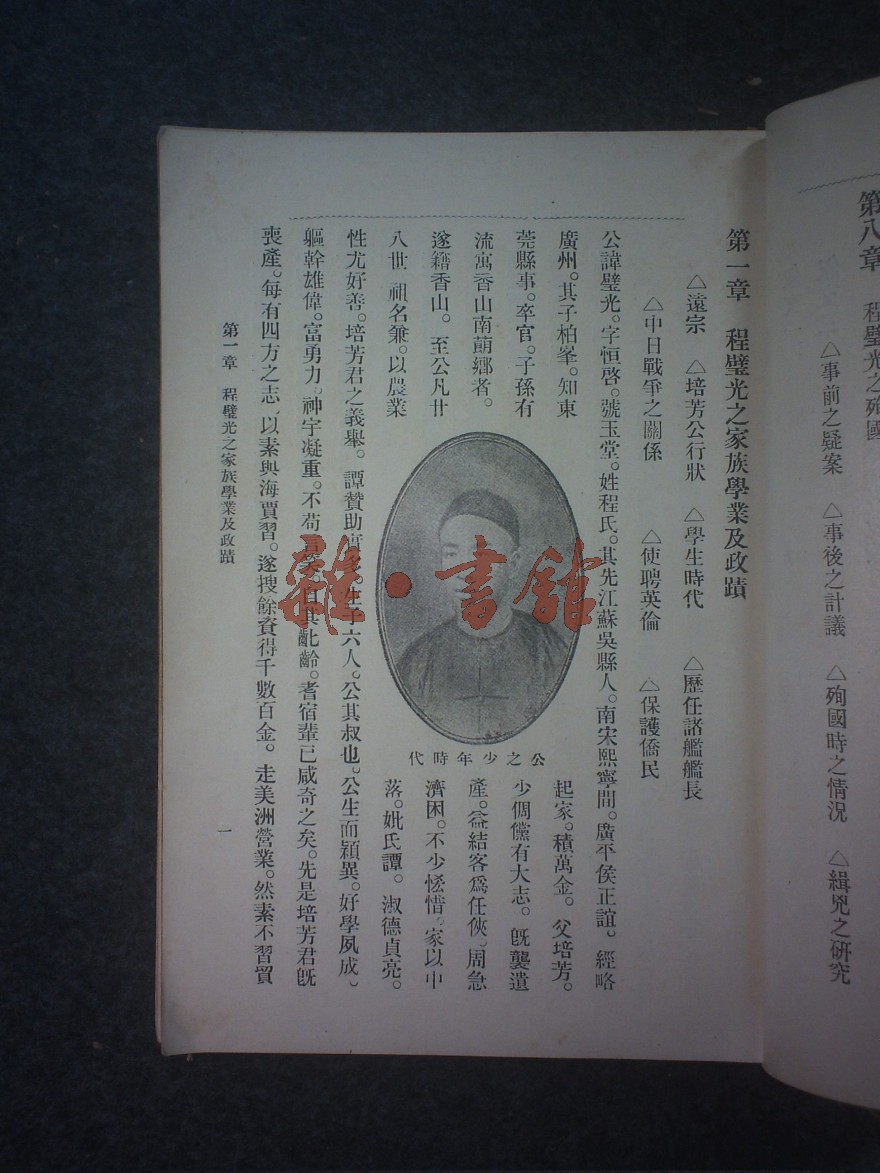 第八章　程璧光之殉國
△事前之疑案　△事後之計議　△殉國時之情況　△緝兇之研究
第一章　程璧光之家族學業及政蹟
△遠宗　△培芳公行狀　△學生時代　△歷任諸艦艦長
△中日戰爭之關係　△使聘英倫　△保護僑民
公諱璧光。字恒啓。號玉堂。姓程氏。其先江蘇吳縣人。南宋熙寧間。廣平侯正誼。經略
廣州。其子柏峯。知東
莞縣事。卒官。子孫有
流寓香山南蓢鄉者。
遂籍香山。至公凡廿
八世　祖名兼。以農業
起家。積萬金。父培芳。
少倜儻有大志。旣襲遺
產。益結客爲任俠。周急
濟困。不少悋惜。家以中
落。妣氏譚。淑德貞亮。
公之少年時代
性尤好善。培芳君之義舉。譚贊助實多。生子六人。公其叔也。公生而穎異。好學夙成。
軀幹雄偉。富勇力。神宇凝重。不苟言笑。自其齠齡。耆宿輩已咸奇之矣。先是培芳君旣
喪產。每有四方之志　以素與海賈習。遂搜餘資得千數百金。走美洲營業。然素不習貿
第一章　程璧光之家族學業及政蹟
一
雜·書館